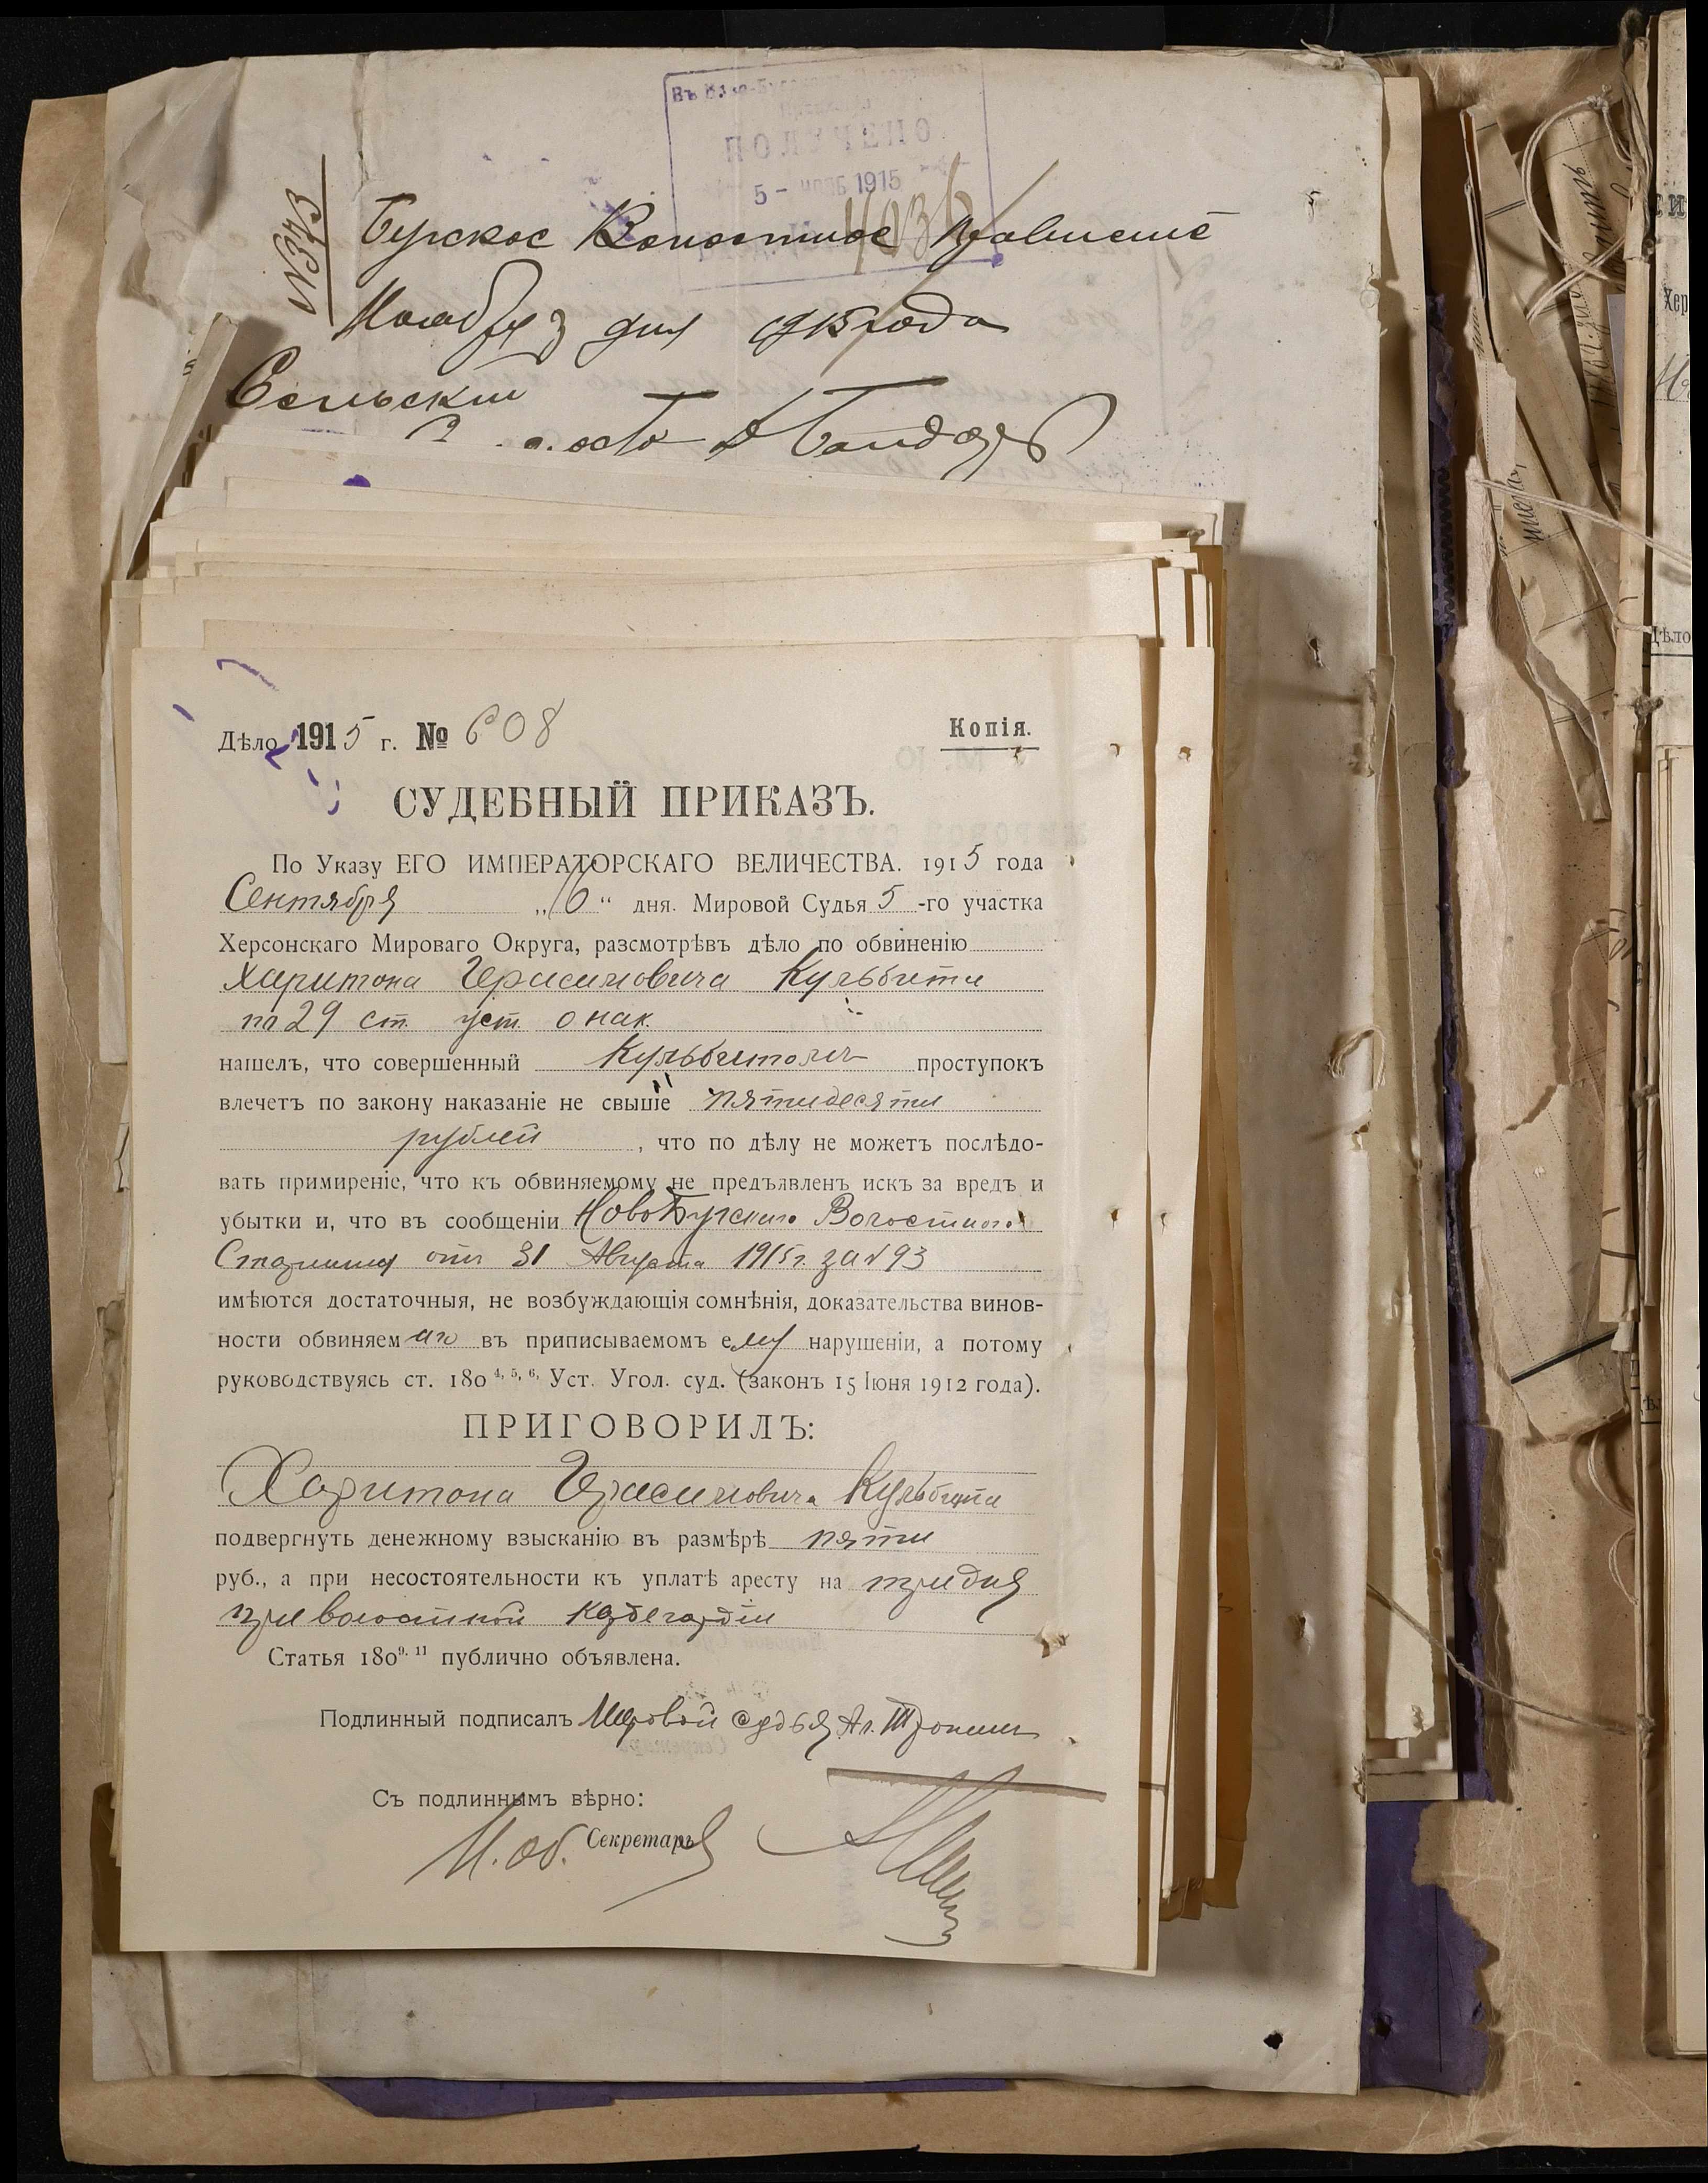 Въ Ново-Бугское
ПОЛУЧЕНО
5 - НОЯБ 1915
4036
№373
Бугское Волостное Правление
Ноября 3 дня 1915 года
Сельский
Дѣло 1915 г. № 608
Копія.
СУДЕБНЫЙ ПРИКАЗЪ.
По Указу ЕГО ИМПЕРАТОРСКАГО ВЕЛИЧЕСТВА. 1915 года
Сентября „16“ дня. Мировой Судья 5-го участка
Херсонскаго Мироваго Округа, разсмотрѣвъ дѣло по обвиненію
Харитона Герасимовича Кульбити
по 29 ст. уст. о нак.
нашелъ, что совершенный проступокъ
влечетъ по закону наказаніе не свыше пятидесяти
рублей, что по дѣлу не можетъ послѣдо-
вать примиреніе, что къ обвиняемому не предъявленъ искъ за вредъ и
убытки и, что въ сообщеніи НовоБугскаго Волостного
Старшины отъ 31 Августа 1915 г. за № 93
имѣются достаточныя, не возбуждающія сомнѣнія, доказательства винов-
ности обвиняемаго въ приписываемомъ ему нарушеніи, а потому
руководствуясь ст. 180 4, 5, 6, Уст. Угол. суд. (законъ 15 Іюня 1912 года).
ПРИГОВОРИЛЪ:
Харитона Герасимовича Кульбити
подвергнуть денежному взысканію въ размѣрѣ пяти
руб., а при несостоятельности къ уплатѣ аресту на три дня
при волостной кордегардіи
Статья 180 9. 11 публично объявлена.
Подлинный подписалъ Мировой Судья Ал.
Съ подлиннымъ вѣрно:
И. об. Секретаря